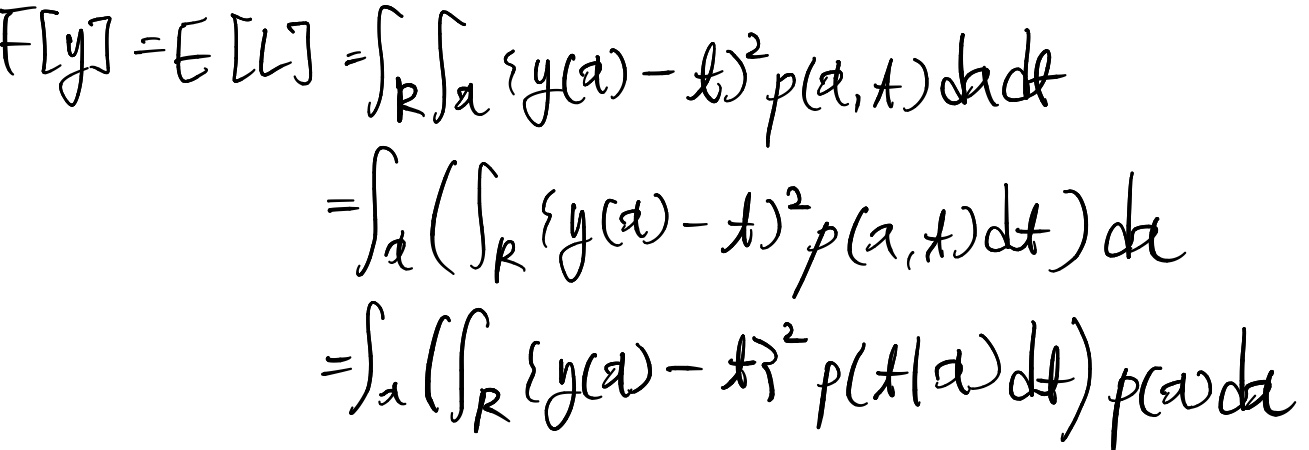 F[y] = E[L] = ∫_R ∫_x {y(x) − t}² p(x, t) dx dt
= ∫_x ( ∫_R {y(x) − t}² p(x, t) dt ) dx
= ∫_x ( ∫_R {y(x) − t}² p(t|x) dt ) p(x) dx